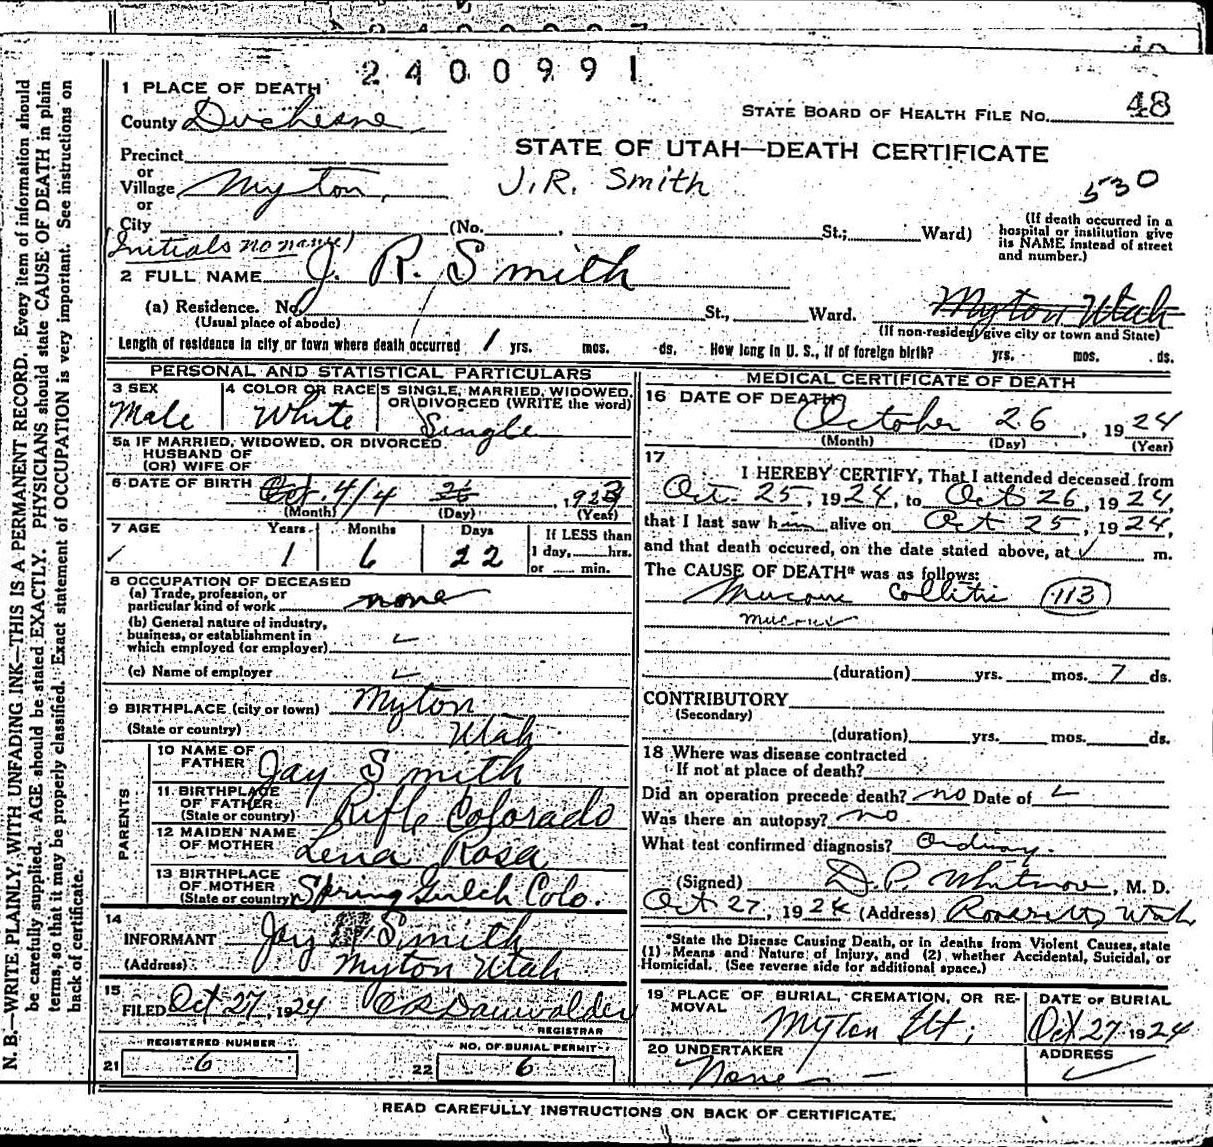 2400991
1 PLACE OF DEATH
STATE BOARD OF HEALTH FILE NO. 48
County Duchesne
STATE OF UTAH—DEATH CERTIFICATE
Precinct
or
Village Myton
J.R. Smith
530
or
City (No. , St.; Ward)
(If death occurred in a hospital or institution give its NAME instead of street and number.)
(Initials no name)
2 FULL NAME J. R. Smith
(a) Residence. No. St., Ward. Myton Utah
(Usual place of abode)
(If non-resident give city or town and State)
Length of residence in city or town where death occurred 1 yrs. mos. ds. How long in U. S., if of foreign birth? yrs. mos. ds.
PERSONAL AND STATISTICAL PARTICULARS
3 SEX
Male
4 COLOR OR RACE
White
5 SINGLE, MARRIED, WIDOWED, OR DIVORCED (WRITE the word)
Single
5a IF MARRIED, WIDOWED, OR DIVORCED
HUSBAND OF
(OR) WIFE OF
6 DATE OF BIRTH Oct. 4/4 26, 1923
(Month) (Day) (Year)
7 AGE Years Months Days If LESS than
1 6 22 1 day, hrs.
or min.
8 OCCUPATION OF DECEASED
(a) Trade, profession, or
particular kind of work none
(b) General nature of industry,
business, or establishment in
which employed (or employer)
(c) Name of employer
9 BIRTHPLACE (city or town) Myton
(State or country) Utah
PARENTS
10 NAME OF FATHER Jay Smith
11 BIRTHPLACE OF FATHER (State or country) Rifle Colorado
12 MAIDEN NAME OF MOTHER Lena Rosa
13 BIRTHPLACE OF MOTHER (State or country) Spring Gulch Colo.
14
INFORMANT Jay Smith
(Address) Myton Utah
15
FILED Oct 27, 1924 Dauwalder
REGISTRAR
REGISTERED NUMBER
21 6
NO. OF BURIAL PERMIT
22 6
MEDICAL CERTIFICATE OF DEATH
16 DATE OF DEATH
October 26, 1924
(Month) (Day) (Year)
17
I HEREBY CERTIFY, That I attended deceased from
Oct. 25, 1924, to Oct 26, 1924,
that I last saw him alive on Oct 25, 1924,
and that death occured, on the date stated above, at m.
The CAUSE OF DEATH* was as follows:
Mucous Collitis 113
mucous
(duration) yrs. mos. 7 ds.
CONTRIBUTORY
(Secondary)
(duration) yrs. mos. ds.
18 Where was disease contracted
If not at place of death?
Did an operation precede death? no Date of
Was there an autopsy? no
What test confirmed diagnosis? Ordinary.
(Signed) D. P. Whitmore, M. D.
Oct 27, 1924 (Address) Roosevelt, Utah
*State the Disease Causing Death, or in deaths from Violent Causes, state
(1) Means and Nature of Injury, and (2) whether Accidental, Suicidal, or
Homicidal. (See reverse side for additional space.)
19 PLACE OF BURIAL, CREMATION, OR REMOVAL
Myton Ut;
DATE OF BURIAL
Oct 27 1924
20 UNDERTAKER
None
ADDRESS
READ CAREFULLY INSTRUCTIONS ON BACK OF CERTIFICATE.
N. B.—WRITE PLAINLY, WITH UNFADING INK—THIS IS A PERMANENT RECORD. Every item of information should
be carefully supplied. AGE should be stated EXACTLY. PHYSICIANS should state CAUSE OF DEATH in plain
terms, so that it may be properly classified. Exact statement of OCCUPATION is very important. See instructions on
back of certificate.